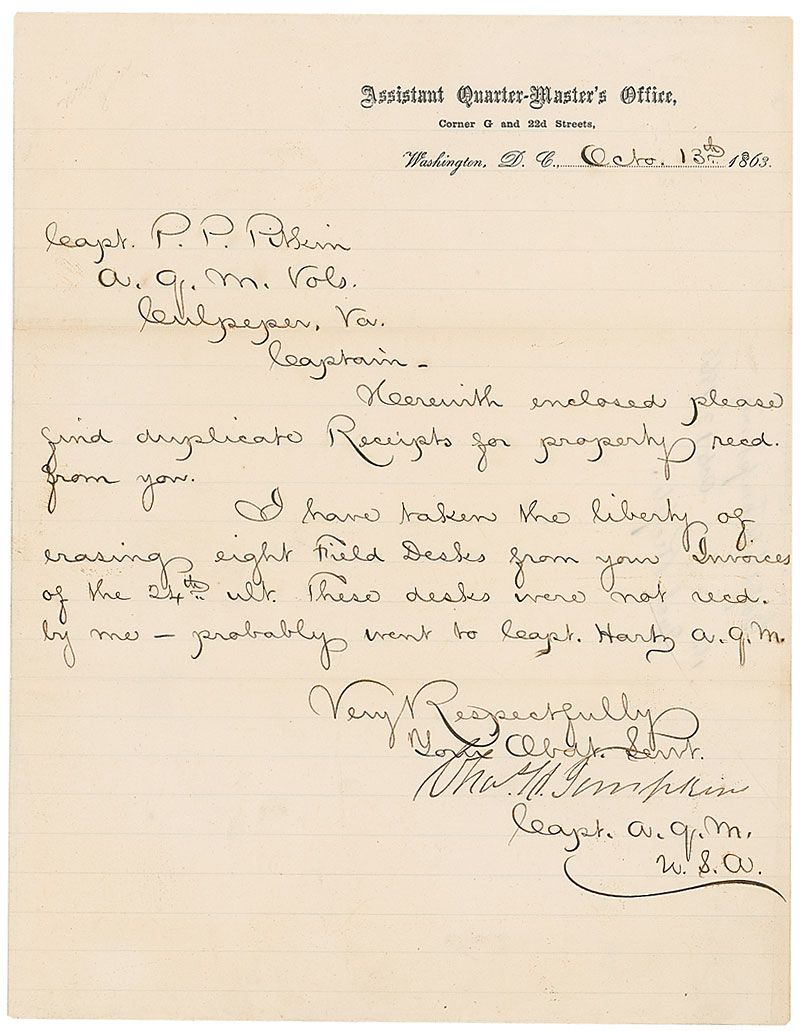 Assistant Quarter-Master's Office,
Corner G and 22d Streets,
Washington, D. C., Octo. 13th 1863.
Capt. P. P. Pitkin
A. Q. M. Vols.
Culpeper, Va.
Captain -
Herewith enclosed please
find duplicate Receipts for property recd.
from you.
I have taken the liberty of
erasing eight Field Desks from your Invoices
of the 24th ult. These desks were not recd.
by me - probably went to Capt. Hartz A. Q. M.
Very Respectfully
Your Obdt. Servt.
Tompkins
Capt. A. Q. M.
U. S. A.